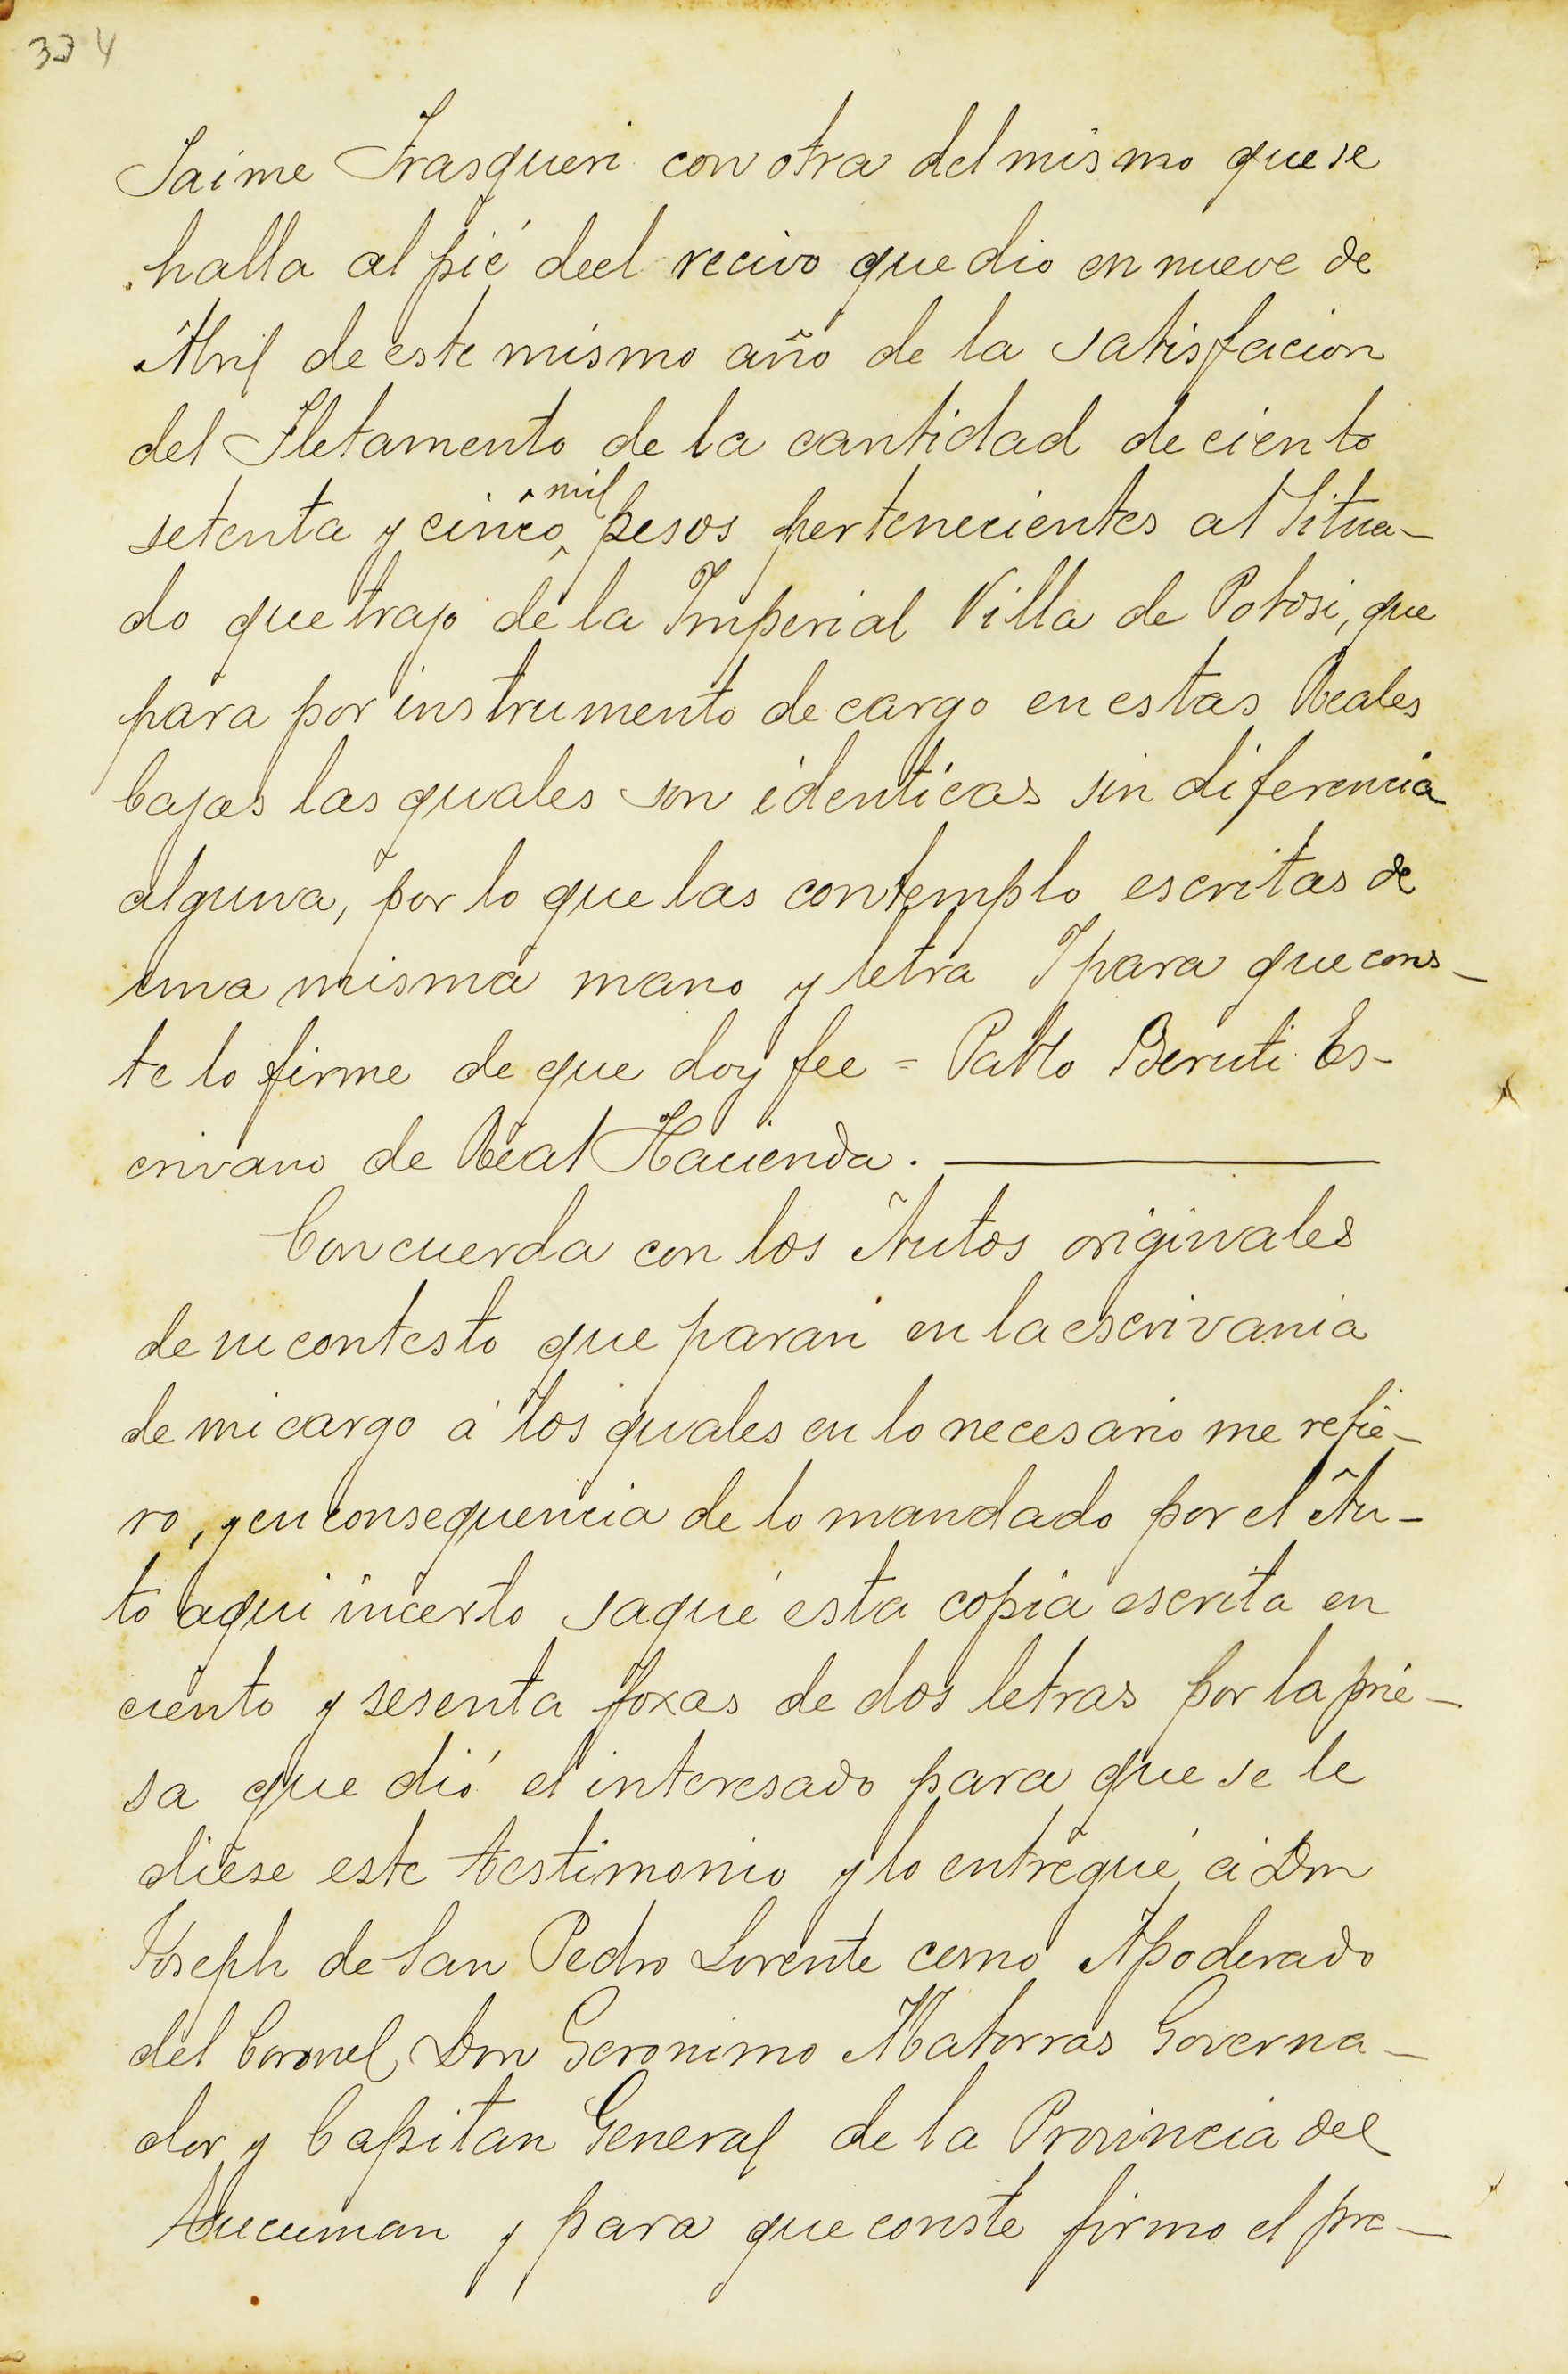 334
Jaime Frasqueri con otra del mismo que se
halla al pié deel recivo que dio en nueve de
Abril de este mismo año de la satisfacion
del Fletamento de la cantidad de ciento
setenta y cinco mil pesos pertenecientes al Situa-
do que trajo de la Imperial Villa de Potosi, que
para por instrumento de cargo en estas Reales
Cajas las quales son identicas sin diferencia
alguna, por lo que las contemplo escritas de
una misma mano y letra Y para que cons-
te lo firme de que doy fee = Pablo Beruti Es-
crivano de Real Hacienda.
Concuerda con los Autos originales
de su contesto que paran en la escrivania
de mi cargo á los quales en lo necesario me refie-
ro, y en consequencia de lo mandado por el Au-
to aqui incerto saqué esta copia escrita en
ciento y sesenta foxas de dos letras por la prie-
sa que dió el interesado para que se le
diese este testimonio y lo entregué á Dn
Joseph de San Pedro Lorente como Apoderado
del Coronel Dn Geronimo Matorras Governa-
dor y Capitan General de la Provincia del
Tucuman y para que conste firmo el pre-